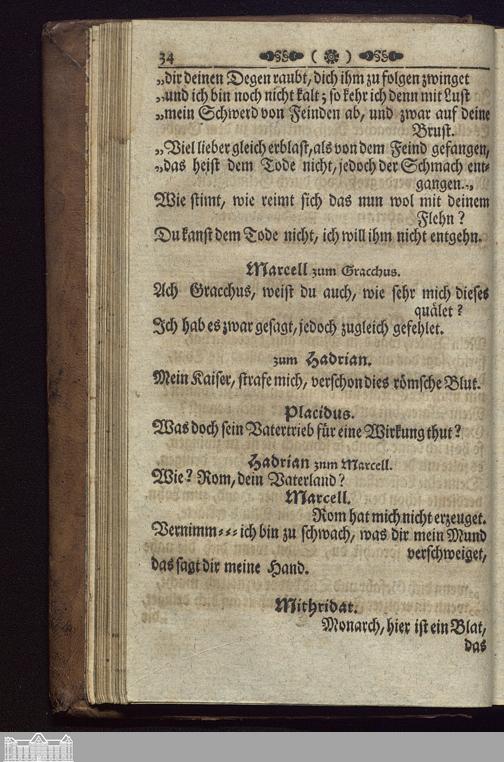 34 ( )
„dir deinen Degen raubt, dich ihm zu folgen zwinget
„und ich bin noch nicht kalt; so kehr ich denn mit Lust
„mein Schwerd von Feinden ab, und zwar auf deine
Brust.
„Viel lieber gleich erblast, als von dem Feind gefangen,
„das heist dem Tode nicht, jedoch der Schmach ent-
gangen.„
Wie stimt, wie reimt sich das nun wol mit deinem
Flehn?
Du kanst dem Tode nicht, ich will ihm nicht entgehn.
Marcell zum Gracchus.
Ach Gracchus, weist du auch, wie sehr mich dieses
quälet?
Ich hab es zwar gesagt, jedoch zugleich gefehlet.
zum Hadrian.
Mein Kaiser, strafe mich, verschon dies römsche Blut.
Placidus.
Was doch sein Vatertrieb für eine Wirkung thut?
Hadrian zum Marcell.
Wie? Rom, dein Vaterland?
Marcell.
Rom hat mich nicht erzeuget.
Vernimm--- ich bin zu schwach, was dir mein Mund
verschweiget,
das sagt dir meine Hand.
Mithridat.
Monarch, hier ist ein Blat,
das